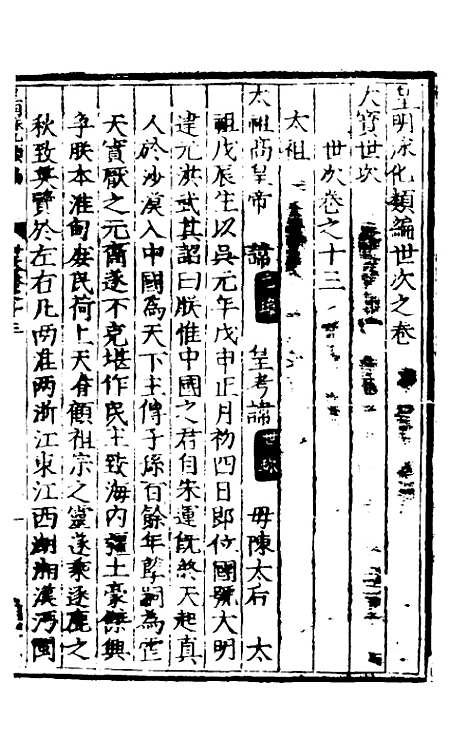 皇明泳化類編世次之卷
大寳世次
世次卷之十三
太祖
太祖高皇帝 諱元璋 皇考諱世珍 母陳太后 太
祖戊辰生以吳元年戊申正月初四日即位國號大明
建元洪武其詔曰朕惟中國之君自宋運旣終天起真
人於沙漠入中國為天下主傳子孫百餘年
天實厭之元裔遂不克堪作民主致海内疆土豪傑興
争朕本淮甸庶民荷上天眷顧祖宗之靈遂乘逐鹿之
秋致英賢於左右凡两淮两浙江東江西湖湘漢沔閩